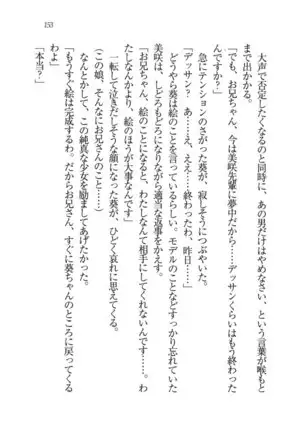 153
　大声で否定したくなるのと同時に、あの男だけはやめなさい、という言葉が喉もと
まで出かかる。
「でも、お兄ちゃん、今は美咲先輩に夢中だから……デッサンくらいはもう終わった」
　急にテンションのさがった葵が、寂しそうにつぶやいた。
「デッサン？　あ……え、ええ……終わったわ、昨日……」
　どうやら葵は絵のことを言っているらしい。モデルのことなどすっかり忘れていた
美咲は、しどろもどろになりながら適当な返事をかえす。
「お兄ちゃん、絵のことになると、わたしなんて相手にしてくれないんです……。わ
たしなんかより、絵のほうが大事なんです……」
　一転して泣きだしそうな顔になった葵が、ひどく哀れに思えてくる。
（この娘、そんなにお兄さんのこと……）
　なんとかして、この純真な少女を励ましてあげたかった。
「もうすぐ絵は完成するわ。だからお兄さん、すぐに葵ちゃんのところに戻ってくる
わよ」
「本当？」